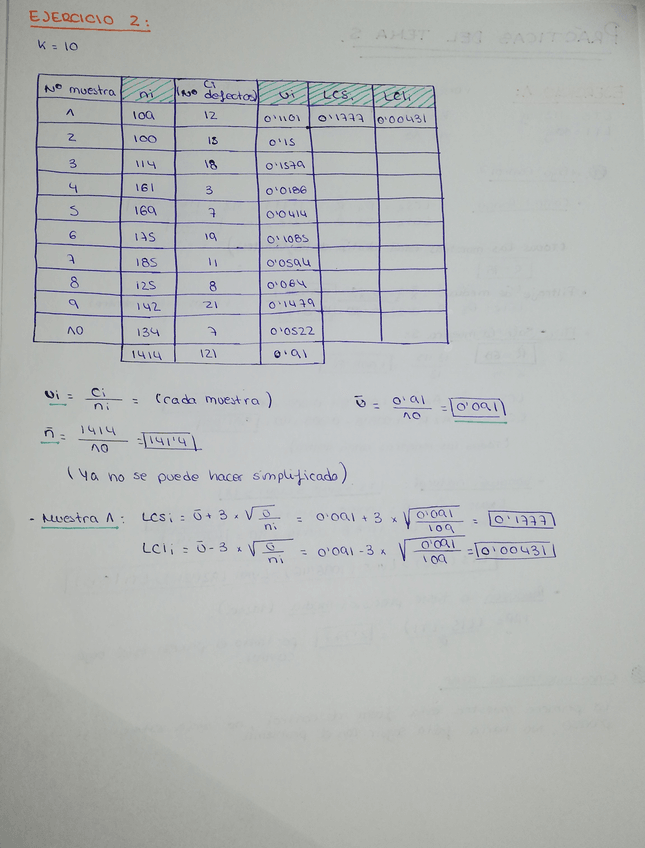 EJERCICIO 2:
K = 10
Nº muestra ni Ci (Nº defectos) Ui LCSi LCIi
1 109 12 0'1101 0'1777 0'00431
2 100 15 0'15
3 114 18 0'1579
4 161 3 0'0186
5 169 7 0'0414
6 175 19 0'1085
7 185 11 0'0594
8 125 8 0'064
9 142 21 0'1479
10 134 7 0'0522
1414 121 0'91
Ui = Ci/ni = (cada muestra) Ū = 0'91/10 = 0'091
n̄ = 1414/10 = 141'4
(Ya no se puede hacer simplificado)
- Muestra 1: LCSi = Ū + 3 × √Ū/ni = 0'091 + 3 × √0'091/109 = 0'1777
LCIi = Ū - 3 × √Ū/ni = 0'091 - 3 × √0'091/109 = 0'00431